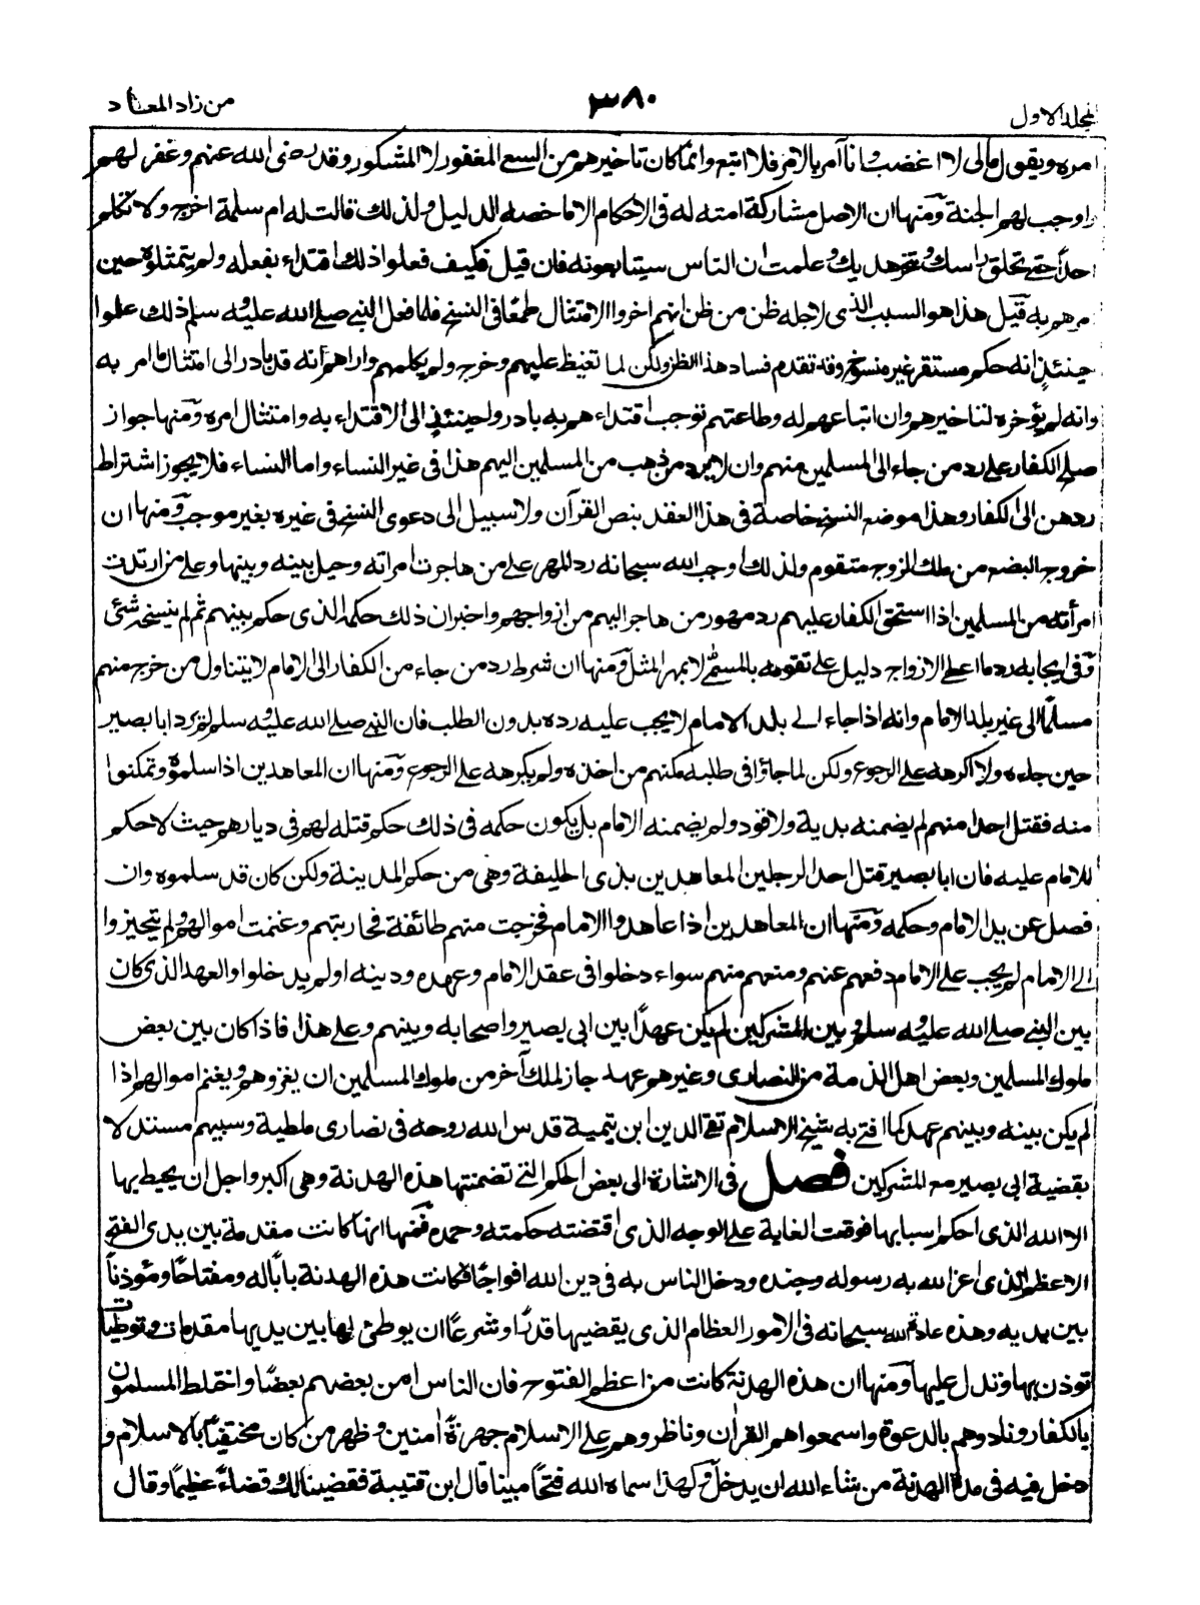 المجلد الاول
٣٨٠
من زاد المعاد
امره ويقول مالى لا اغضب وانا آمر بالامر فلا اتبع وانما كان تاخيرهم من السعى المغفور لا المشكور وقد رضى الله عنهم وغفر لهم
واوجب لهم الجنة ومنها ان الاصل مشاركة امته له فى الاحكام الا ما خصه الدليل ولذلك قالت له ام سلمة اخرج ولا تكلم
احدا حتى تحلق راسك وتنحر هديك وعلمت ان الناس سيتابعونه فان قيل فكيف فعلوا ذلك اقتداء بفعله ولم يتمثلوه حين
امرهم به قيل هذا هو السبب الذى لاجله ظن من ظن انهم اخروا الامتثال طمعا فى النسخ فلما فعل النبى صلى الله عليه وسلم ذلك علموا
حينئذ انه حكم مستقر غير منسوخ وقد تقدم فساد هذا الظن ولكن لما تغيظ عليهم وخرج ولم يكلمهم واراهم انه قد بادر الى امتثال ما امر به
وانه لم يؤخره لتاخيرهم وان اتباعهم له وطاعتهم توجب اقتداءهم به بادروا حينئذ الى الاقتداء به وامتثال امره ومنها جواز
صلح الكفار على رد من جاء الى المسلمين منهم وان لا يرد من ذهب من المسلمين اليهم هذا فى غير النساء واما النساء فلا يجوز اشتراط
ردهن الى الكفار وهذا موضع النسخ خاصة فى هذا العقد بنص القرآن ولا سبيل الى دعوى النسخ فى غيره بغير موجب ومنها ان
خروج البضع من ملك الزوج متقوم ولذلك اوجب الله سبحانه رد المهر على من هاجرت امراته وحيل بينه وبينها وعلى من ارتدت
امرأته من المسلمين اذا استحق الكفار عليهم رد مهور من هاجر اليهم من ازواجهم واخبر ان ذلك حكمه الذى حكم بينهم ثم لم ينسخه شئ
وفى ايجابه رد ما اعطى الازواج دليل على تقومه بالمسمى لا بمهر المثل ومنها ان شرط رد من جاء من الكفار الى الامام لا يتناول من خرج منهم
مسلما الى غير بلد الامام وانه اذا جاء الى بلد الامام لا يجب عليه رده بدون الطلب فان النبى صلى الله عليه وسلم لم يرد ابا بصير
حين جاءه ولا اكرهه على الرجوع ولكن لما جاؤا فى طلبه مكنهم من اخذه ولم يكرهه على الرجوع ومنها ان المعاهدين اذا سلموه وتمكنوا
منه فقتل احدا منهم لم يضمنه بدية ولا قود ولم يضمنه الامام بل يكون حكمه فى ذلك حكم قتله لهم فى ديارهم حيث لا حكم
للامام عليه فان ابا بصير قتل احد الرجلين المعاهدين بذى الحليفة وهى من حكم المدينة ولكن كان قد سلموه وان
فصل عن يد الامام وحكمه ومنها ان المعاهدين اذا عاهدوا الامام فخرجت منهم طائفة فحاربتهم وغنمت اموالهم ولم يتحيزوا
الى الامام لم يجب على الامام دفعهم عنهم ومنعهم منهم سواء دخلوا فى عقد الامام وعهده ودينه او لم يدخلوا والعهد الذى كان
بين النبى صلى الله عليه وسلم وبين المشركين لم يكن عهدا بين ابى بصير واصحابه وبينهم وعلى هذا فاذا كان بين بعض
ملوك المسلمين وبعض اهل الذمة من النصارى وغيرهم عهد جاز لملك آخر من ملوك المسلمين ان يغزوهم ويغنم اموالهم اذا
لم يكن بينه وبينهم عهد كما افتى به شيخ الاسلام تقى الدين ابن تيمية قدس الله روحه فى نصارى ملطية وسبيهم مستدلا
بقضية ابى بصير مع المشركين فصل فى الاشارة الى بعض الحكم التى تضمنتها هذه الهدنة وهى اكبر واجل ان يحيط بها
الا الله الذى احكم اسبابها فوقعت الغاية على الوجه الذى اقتضته حكمته وحمده فمنها انها كانت مقدمة بين يدى الفتح
الاعظم الذى اعز الله به رسوله وجنده ودخل الناس به فى دين الله افواجا فكانت هذه الهدنة بابا له ومفتاحا ومؤذنا
بين يديه وهذه عادة الله سبحانه فى الامور العظام الذى يقضيها قدرا وشرعا ان يوطئ لها بين يديها مقدمات وتوطيات
توذن بها وتدل عليها ومنها ان هذه الهدنة كانت من اعظم الفتوح فان الناس امن بعضهم بعضا واختلط المسلمون
بالكفار ونادوهم بالدعوة واسمعوهم القرأن وناظروهم على الاسلام جهرة أمنين وظهر من كان مختفيا بالاسلام و
دخل فيه فى مدة الهدنة من شاء الله ان يدخل ولهذا سماه الله فتحا مبينا قال ابن قتيبة فقضينا لك قضاء عظيما وقال